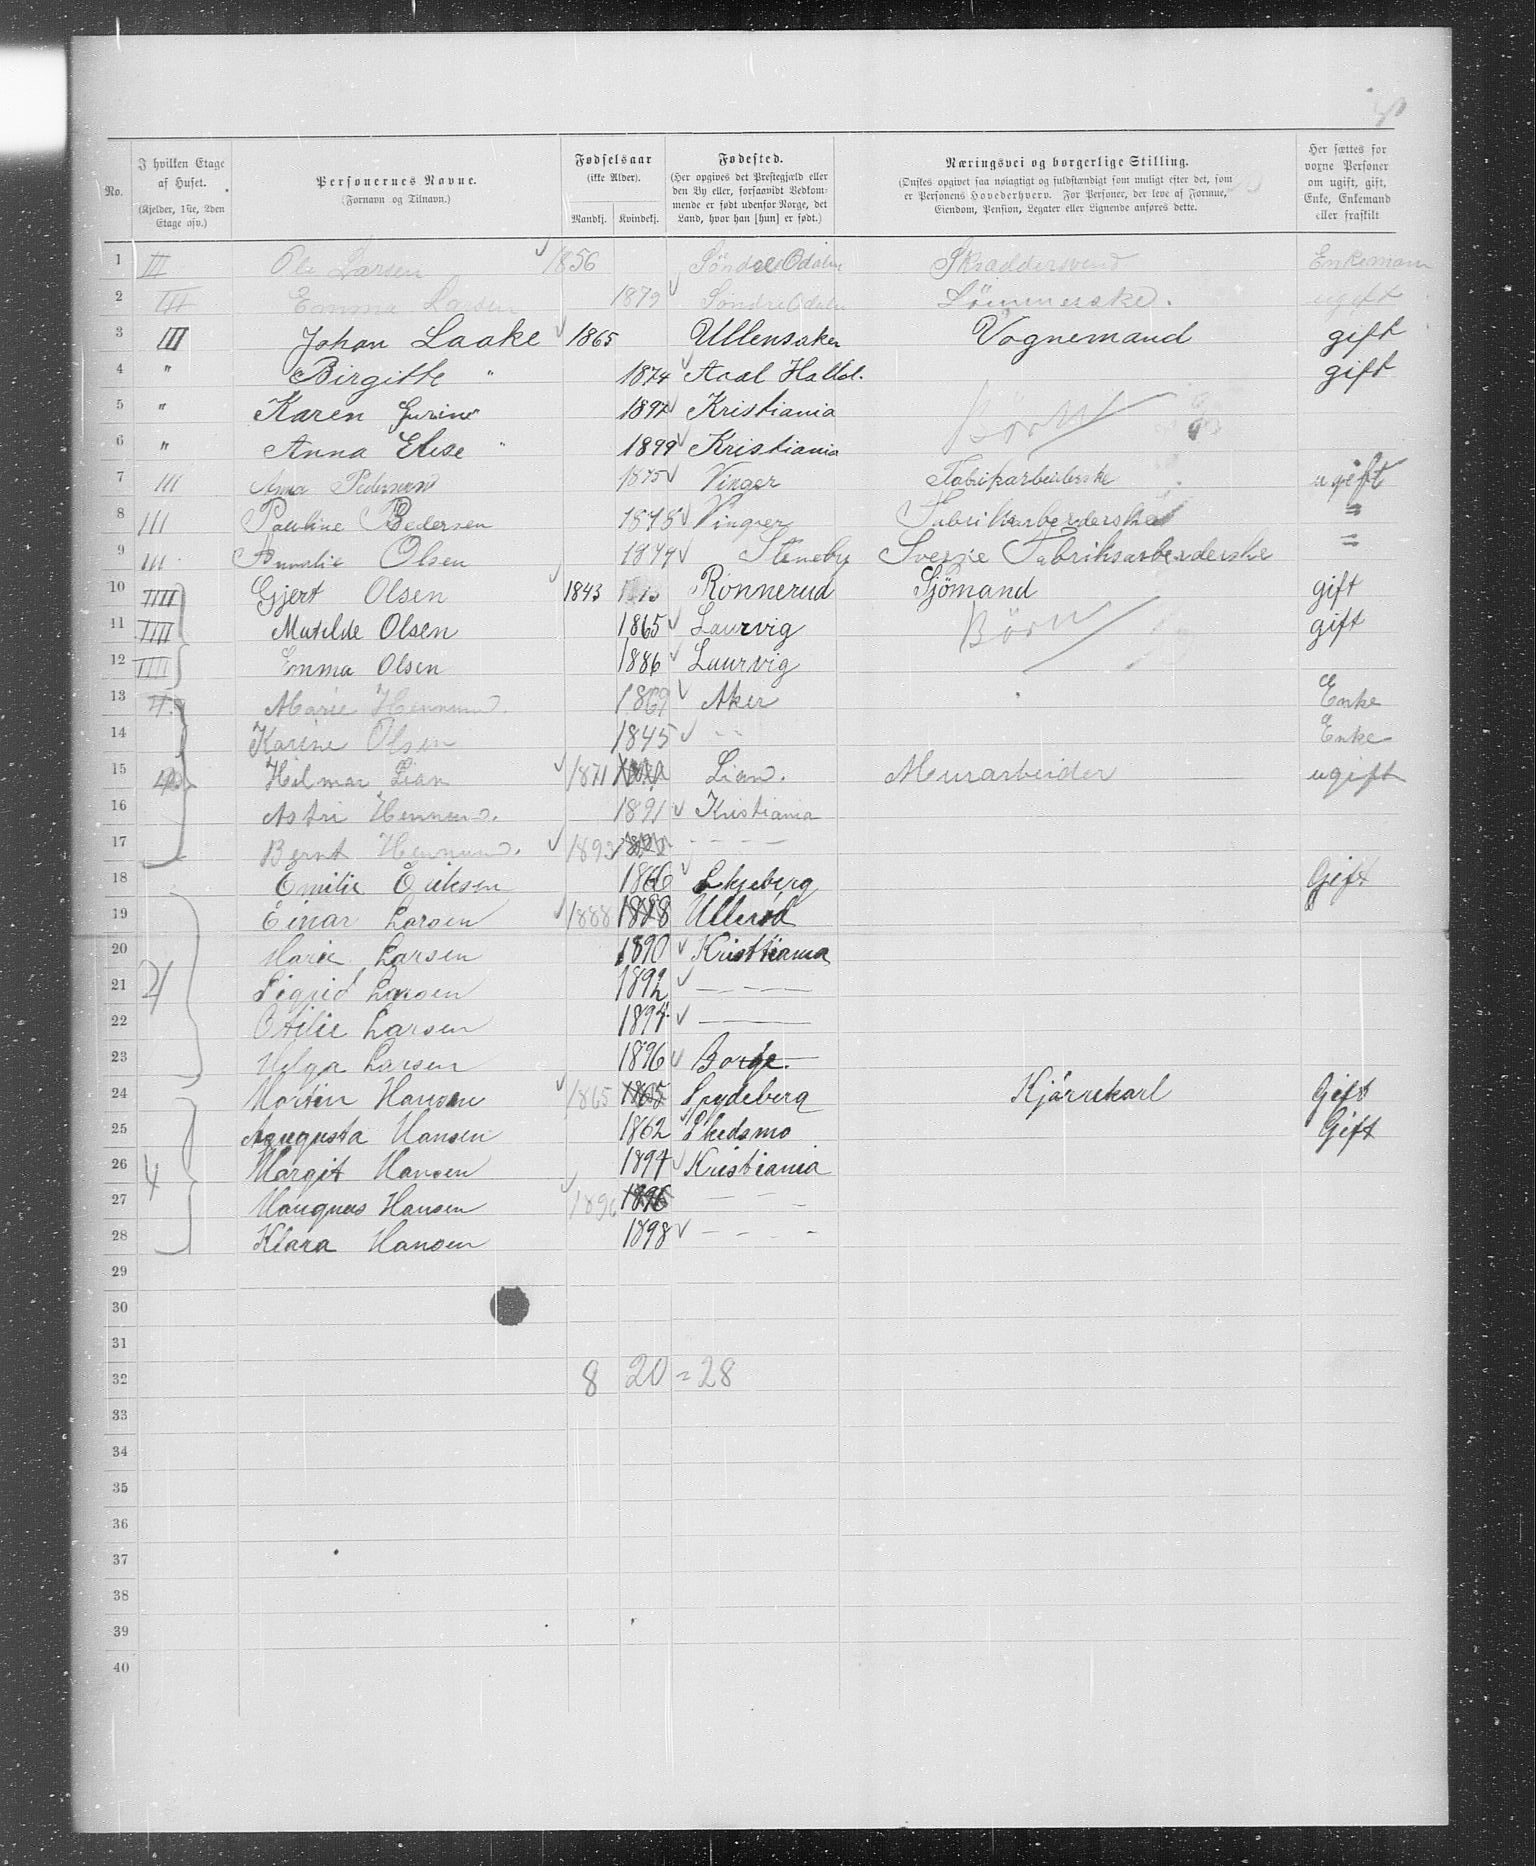 No. | I hvilken Etage af Huset. (Kjelder, 1ste, 2den Etage osv.) | Personernes Navne. (Fornavn og Tilnavn.) | Fødselsaar (ikke Alder). Mandkj. Kvindekj. | Fødested. (Her opgives det Prestegjæld eller den By eller, forsaavidt Vedkommende er født udenfor Norge, det Land, hvor han [hun] er født.) | Næringsvei og borgerlige Stilling. (Ønskes opgivet saa nøiagtigt og fuldstændigt som muligt efter det, som er Personens Hovederhverv. For Personer, der leve af Formue, Eiendom, Pension, Legater eller Lignende anføres dette. | Her sættes for voxne Personer om ugift, gift, Enke, Enkemand eller fraskilt
1 III Ole Larsen 1856 Söndre Odalen Skræddersvend Enkemann
2 III Emma Larsen 1879 Söndre Odalen Sömmerske. ugift
3 III Johan Laake 1865 Ullensaker Vognemand gift
4 " Birgitte " 1874 Aaal Halld. gift
5 " Karen Gurine " 1897 Kristiania Börn
6 " Anna Elise " 1899 Kristiania
7 III Anna Pedersen 1875 Vinger Fabrikarbeiderske ugift
8 III Pauline Pedersen 1875 Vinger Fabrikarbeiderske "
9 III Olsen Steneby Sverje Fabriksarbeiderske "
10 IIII Gjert Olsen 1843 Rönnerud Sjömand gift
11 IIII Matilde Olsen 1865 Laurvig Börn gift
12 IIII Emma Olsen 1886 Laurvig
13 Marie Hennum 1869 Aker Enke
14 Karine Olsen 1845 " Enke
15 Hilmar Lian 1871 Lian. Murarbeider ugift
16 Astri Hennum. 1891 Kristiania
17 Bernt Hennum. 1893 - - - -
18 Emilie Eriksen 1866 Skjeberg Gift
19 Einar Larsen 1888 1888 Ullerød
20 Marie Larsen 1890 Kristiania
21 2 Sigrid Larsen 1892 - - - -
22 Otilie Larsen 1894 - -
23 Helga Larsen 1896 Borge.
24 Martin Hansen 1865 1865 Spydeberg Kjørrekarl Gift
25 Augusta Hansen 1862 Skedsmo Gift
26 4 Margit Hansen 1894 Kristiania
27 Maugnus Hansen 1896 1896 - - -
28 Klara Hansen 1898 - - - -
29
30
31
32 8 20 = 28
33
34
35
36
37
38
39
40